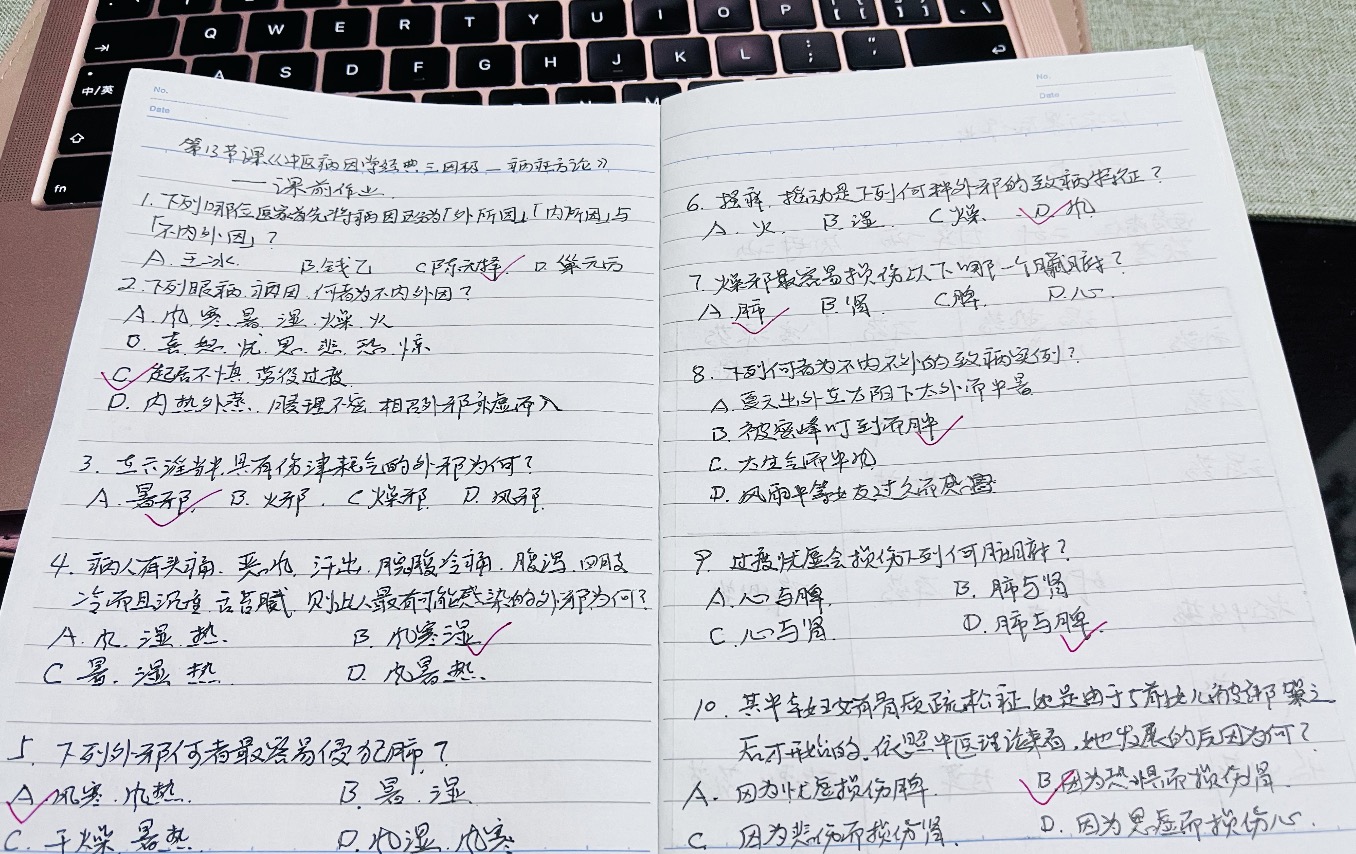 Q W E R T Y U I O P
A S D F G H J K L
中/英
fn
No.
Date
第13节课《中医病因学经典三因极一病症方论》
——课前作业
1. 下列哪位医家首先将病因区分为「外所因」「内所因」与
「不内外因」?
A. 王冰 B. 钱乙 C 陈无择 D. 张元方
2. 下列眼病病因,何者为不内外因?
A. 风.寒.暑.湿.燥.火
D. 喜.怒.忧.思.悲.恐.惊
C. 起居不慎.劳役过度
D. 内热外蒸.腠理不密.相召外邪乘虚而入
3. 在六淫当中具有伤津耗气的外邪为何?
A. 暑邪 B. 火邪. C 燥邪 D. 风邪
4. 病人有头痛.恶风.汗出.脘腹冷痛.腹泻.四肢
冷而且沉重.舌苔腻.则此人最有可能感染的外邪为何?
A. 风.湿.热. B. 风寒湿
C 暑.湿.热 D. 风暑热.
5. 下列外邪何者最容易侵犯肺?
A 风寒.风热. B. 暑.湿
C. 干燥.暑热 D. 风湿.风寒
No.
Date
6. 摇动是下列何种外邪的致病特征?
A. 火. B. 湿. C 燥. D. 风
7. 燥邪最容易损伤以下哪一个臟腑?
A. 肺 B. 肾. C 脾. D. 心
8. 下列何者为不内不外的致病实例?
A. 夏天出外在太阳下太外而中暑
B. 被蜜蜂叮到而肿
C. 大生气而中风
D. 风雨中等女友过久而感冒
9. 过度忧虑会损伤下列何脏腑?
A. 心与脾. B. 肺与肾
C. 心与肾. D. 肺与脾.
10. 某中年妇女有骨质疏松症.她是由于5前女儿被绑架之
后才形成的.依照中医理论来看.她发展的原因为何?
A. 因为忧虑损伤脾. B 因为恐惧而损伤肾
C 因为悲伤而损伤肾. D. 因为思虑而损伤心.